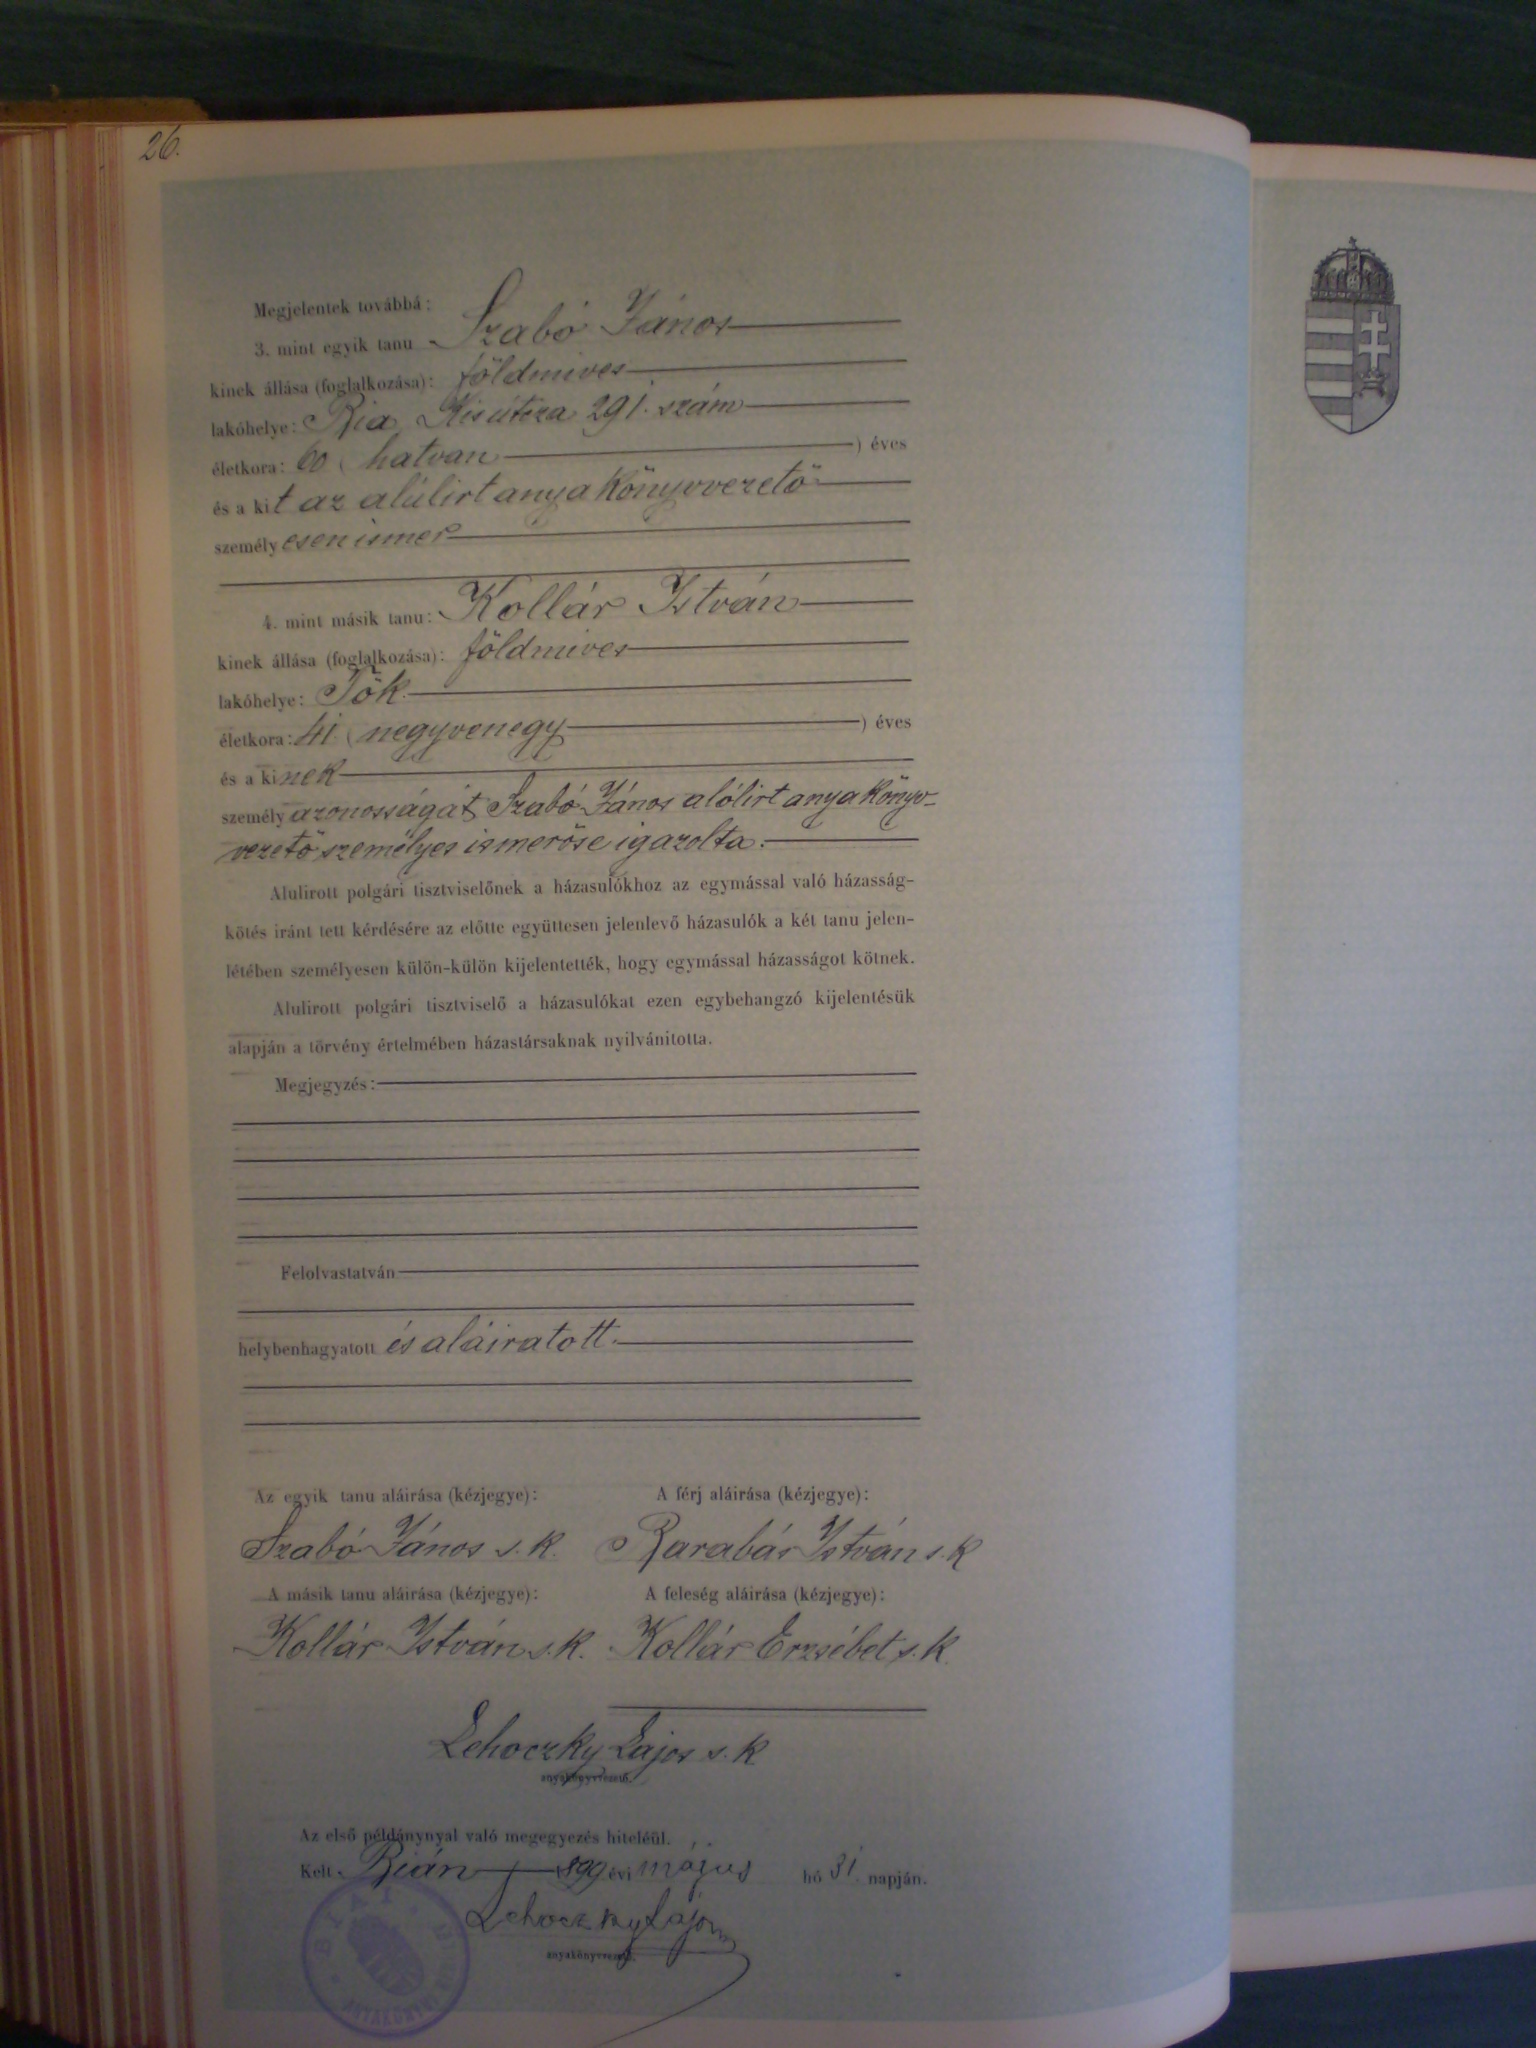 26.
Megjelentek továbbá:
3. mint egyik tanu Szabó János
kinek állása (foglalkozása): földmives
lakóhelye: Bia, Kisútcza 291. szám
életkora: 60 (hatvan) éves
és a kit az alúlirt anyakönyvvezető
személyesen ismer
4. mint másik tanu: Kollár István
kinek állása (foglalkozása): földmives
lakóhelye: Tök.
életkora: 41. (negyvenegy) éves
és a kinek
személyazonosságát Szabó János alólirt anyakönyv-
vezető személyes ismerőse igazolta.
Alulirott polgári tisztviselőnek a házasulókhoz az egymással való házasság-
kötés iránt tett kérdésére az előtte együttesen jelenlevő házasulók a két tanu jelen-
létében személyesen külön-külön kijelentették, hogy egymással házasságot kötnek.
Alulirott polgári tisztviselő a házasulókat ezen egybehangzó kijelentésük
alapján a törvény értelmében házastársaknak nyilvánitotta.
Megjegyzés:
Felolvastatván
helybenhagyatott és aláiratott.
Az egyik tanu aláirása (kézjegye): A férj aláirása (kézjegye):
Szabó János s. k. Barabás István s. k
A másik tanu aláirása (kézjegye): A feleség aláirása (kézjegye):
Kollár István s. k. Kollár Erzsébet s. k.
Lehoczky Lajos s. k
anyakönyvvezető.
Az első példánynyal való megegyezés hiteléül.
Kelt Bián 1899 évi május hó 31. napján.
Lehoczky Lajos
anyakönyvvezető.
BIAI